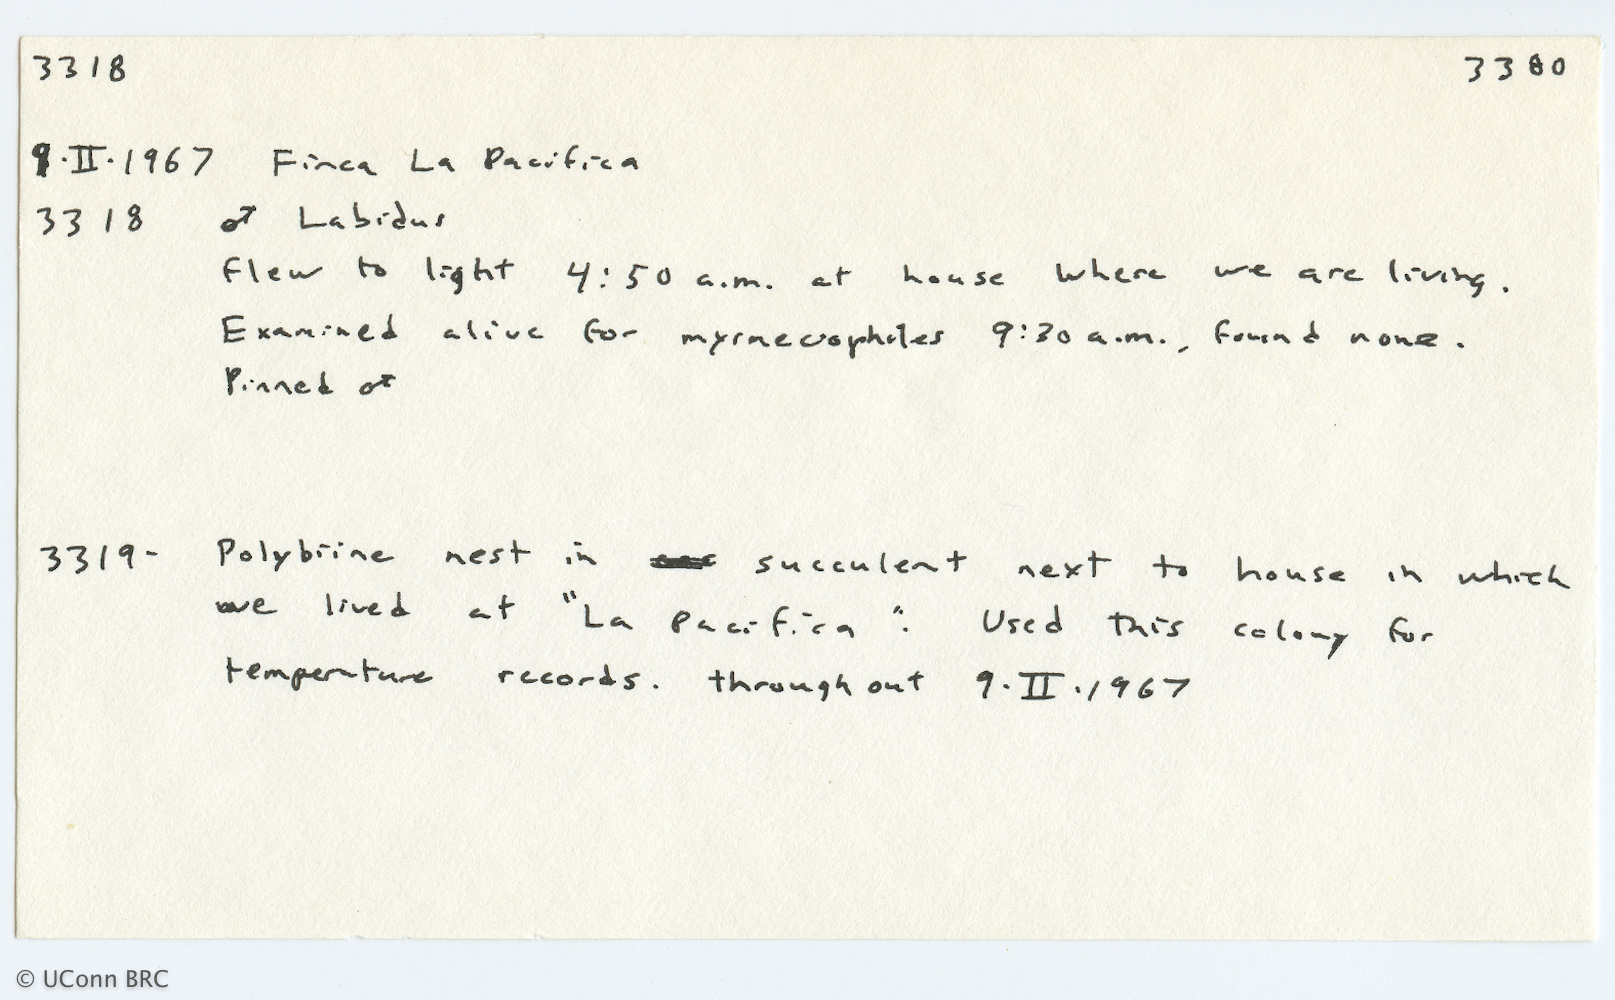 3318 3380
9·II·1967 Finca La Pacifica
3318 ♂ Labidus
flew to light 4:50 a.m. at house where we are living.
Examined alive for myrmecophiles 9:30 a.m., found none.
Pinned ♂
3319- Polybiine nest in succulent next to house in which
we lived at "La Pacifica". Used this colony for
temperature records. throughout 9·II·1967
© UConn BRC